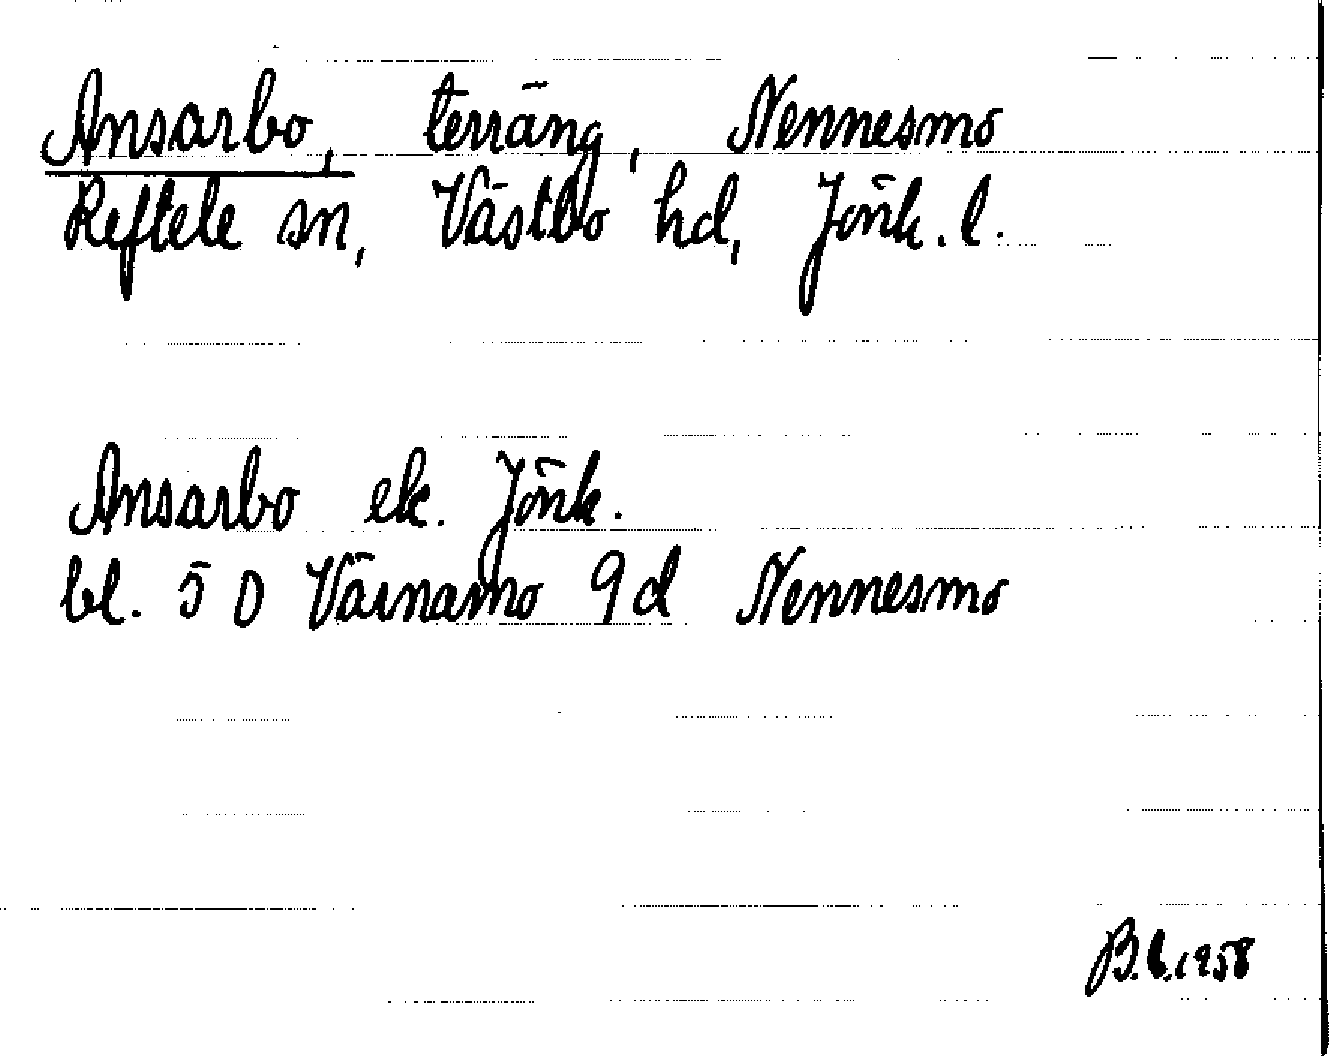 Ansarbo, terräng, Nennesmo
Reftele sn, Västbo hd, Jönk. l.
Ansarbo ek. Jönk.
bl. 5 D Värnamo 9d Nennesmo
B.L. 1958